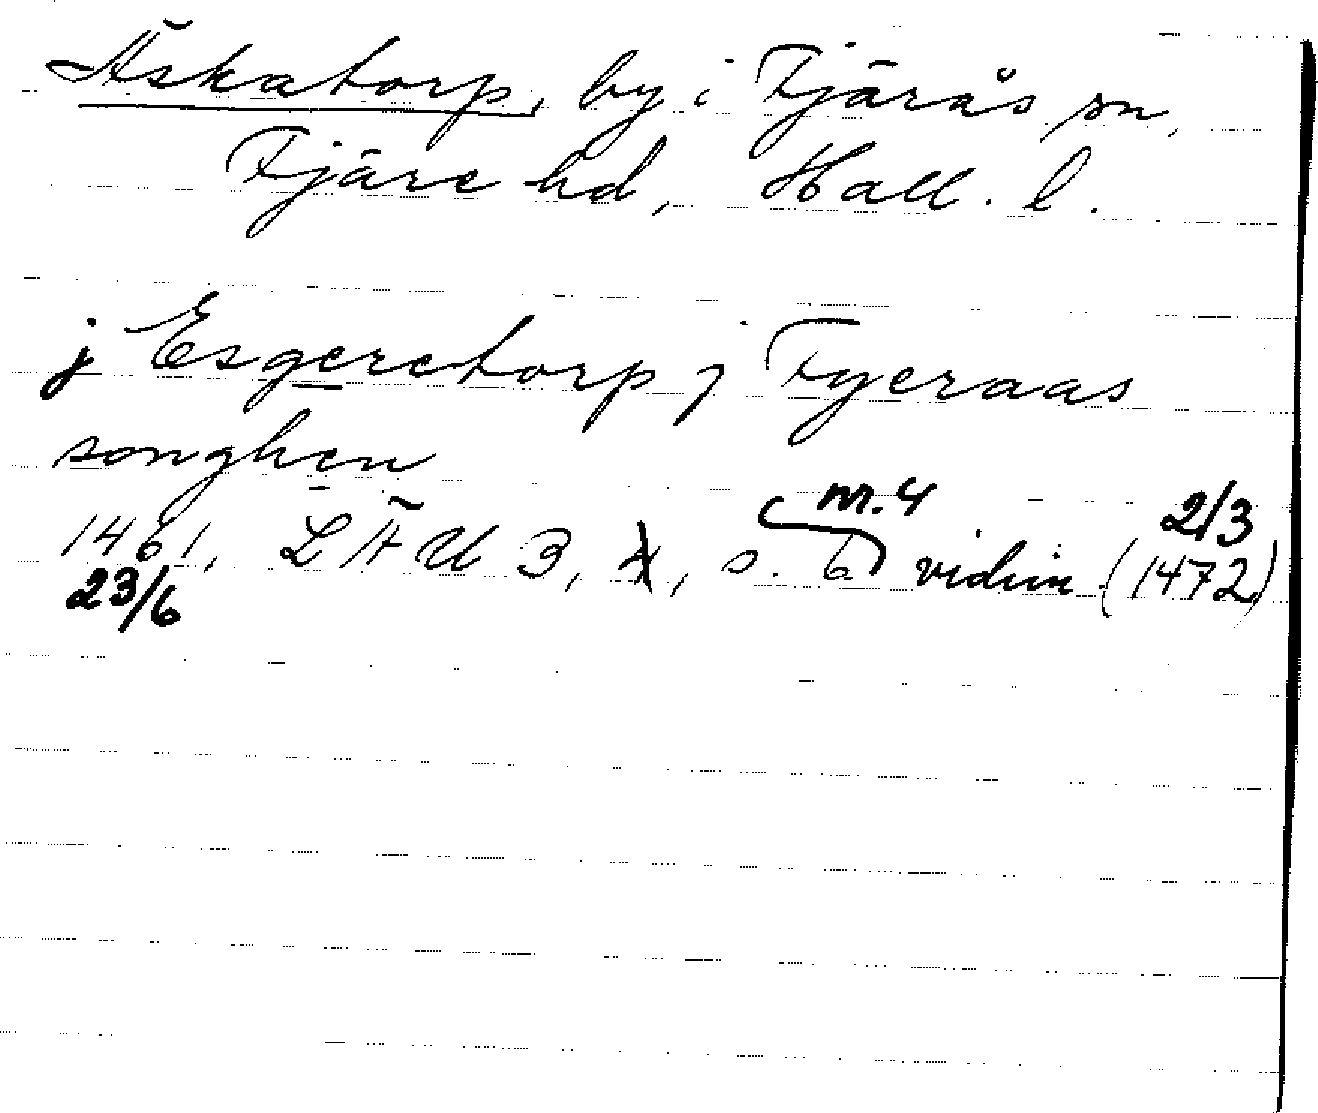 Äskatorp, by i Fjärås sn,
Fjäre hd, Hall. l.
j Esgeretorp j Fyeraas
songhen
nr. 4 2/3
1461, LÄU 3, s. 6 vidim (1472)
23/6